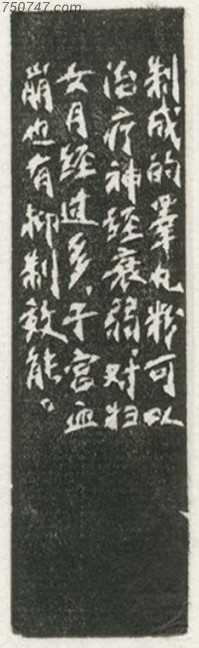 750747.com
制成的睾丸粉可以
治疗神经衰弱，对妇
女月经过多，子宫血
崩也有抑制效能。